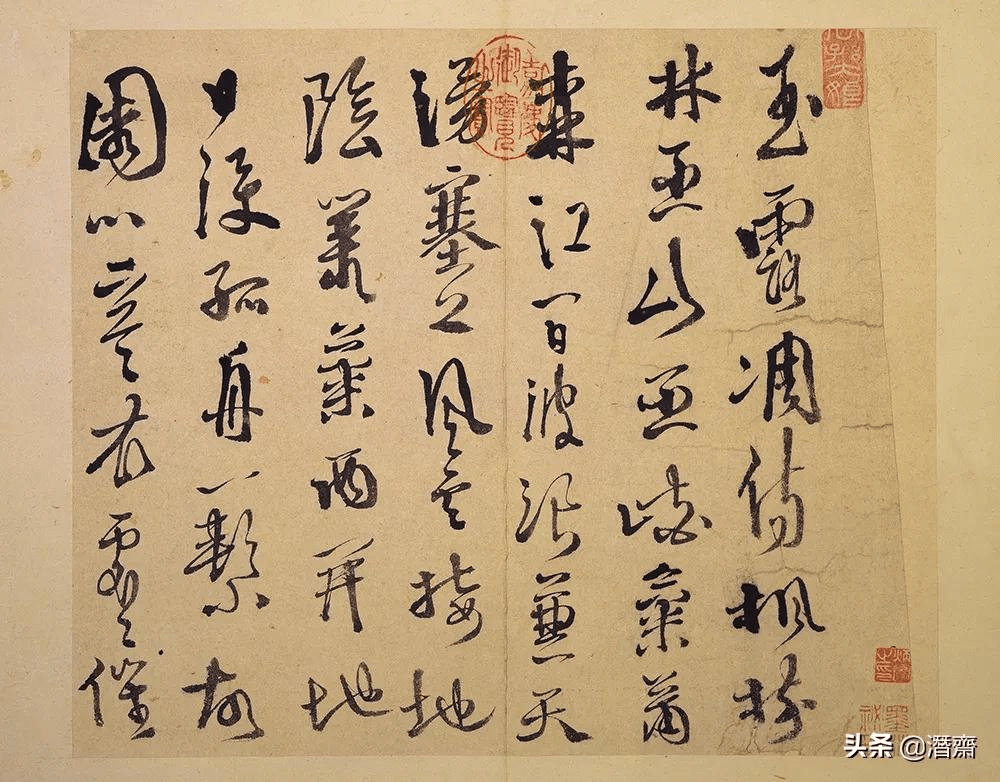 玉露凋傷楓樹
林巫山巫峽氣蕭
森江間波浪兼天
湧塞上風雲接地
陰叢菊兩開他
日淚孤舟一繫故
園心寒衣處處催
嘉慶御覽之寶
头条 @潛齋